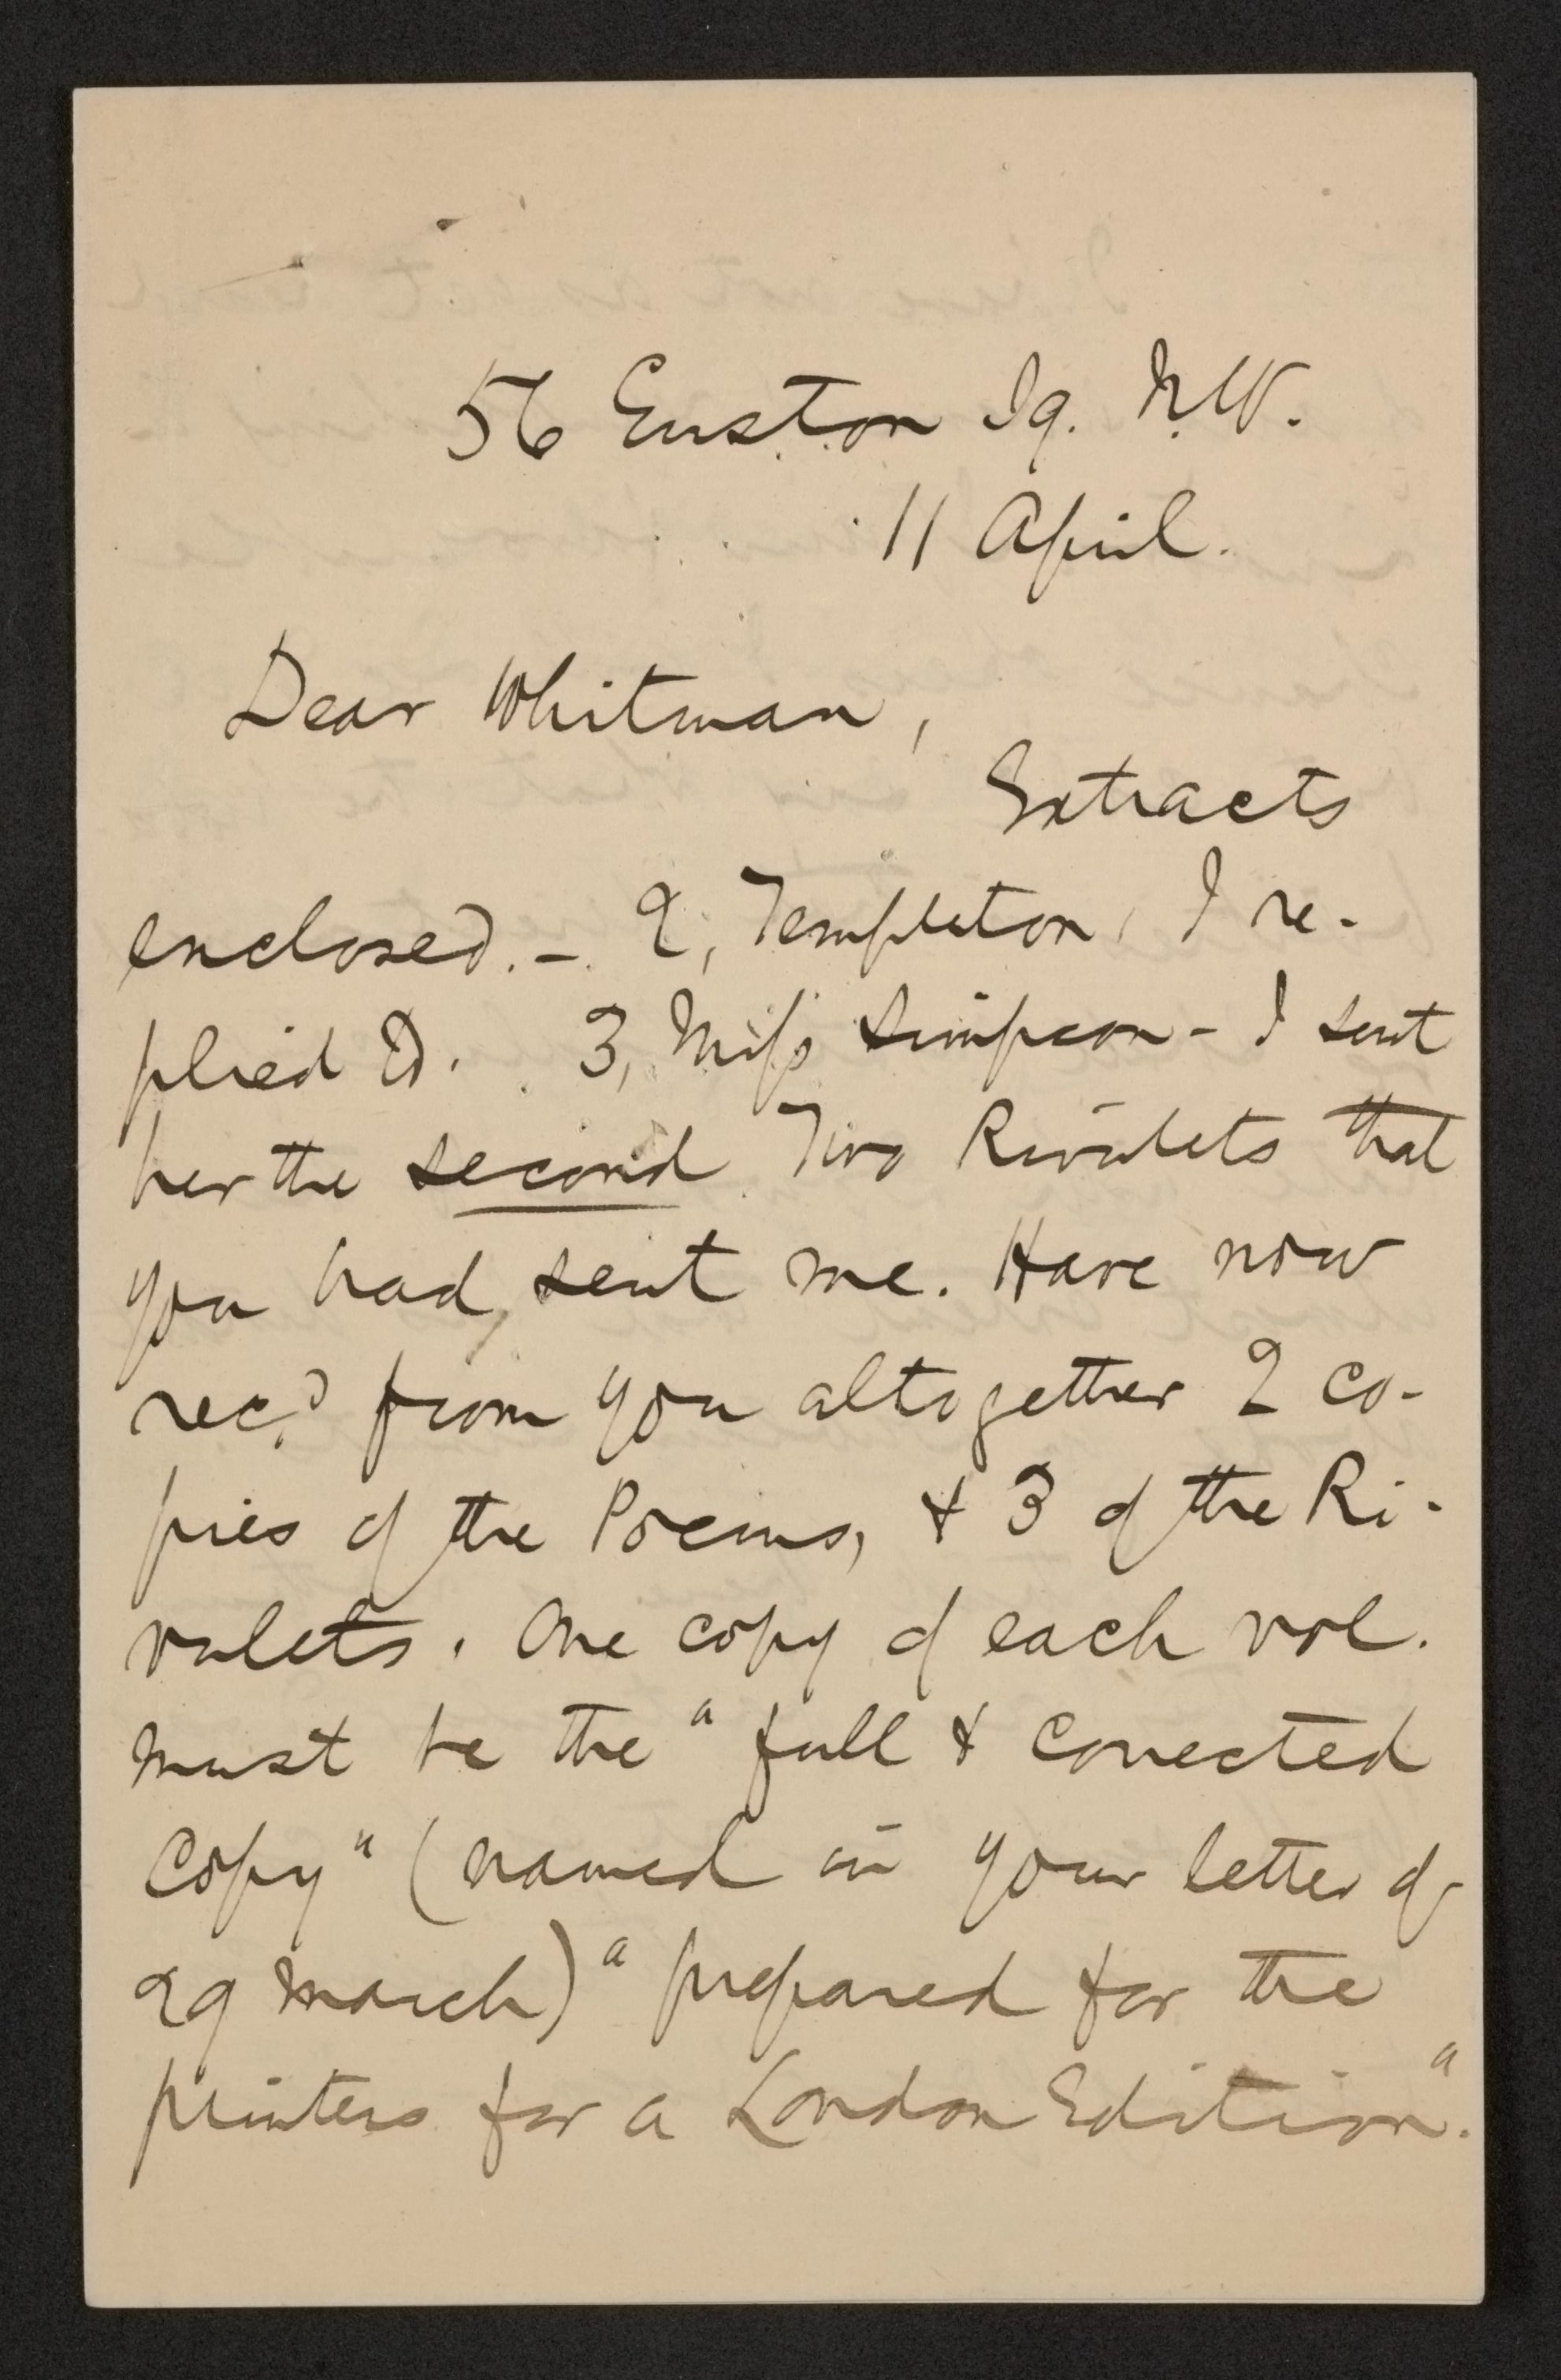 56 Euston Sq. N.W.
11 April.
Dear Whitman,
Extracts
enclosed. – 2, Templeton, I re-
plied D. 3, Miss Simpson – I sent
her the second Two Rivulets that
you had sent me. Have now
recd from you altogether 2 co-
pies of the Poems, & 3 of the Ri-
vulets. One copy of each vol.
must be the "full & corrected
copy" (named in your letter of
29 March) "prepared for the
printers for a London Edition".